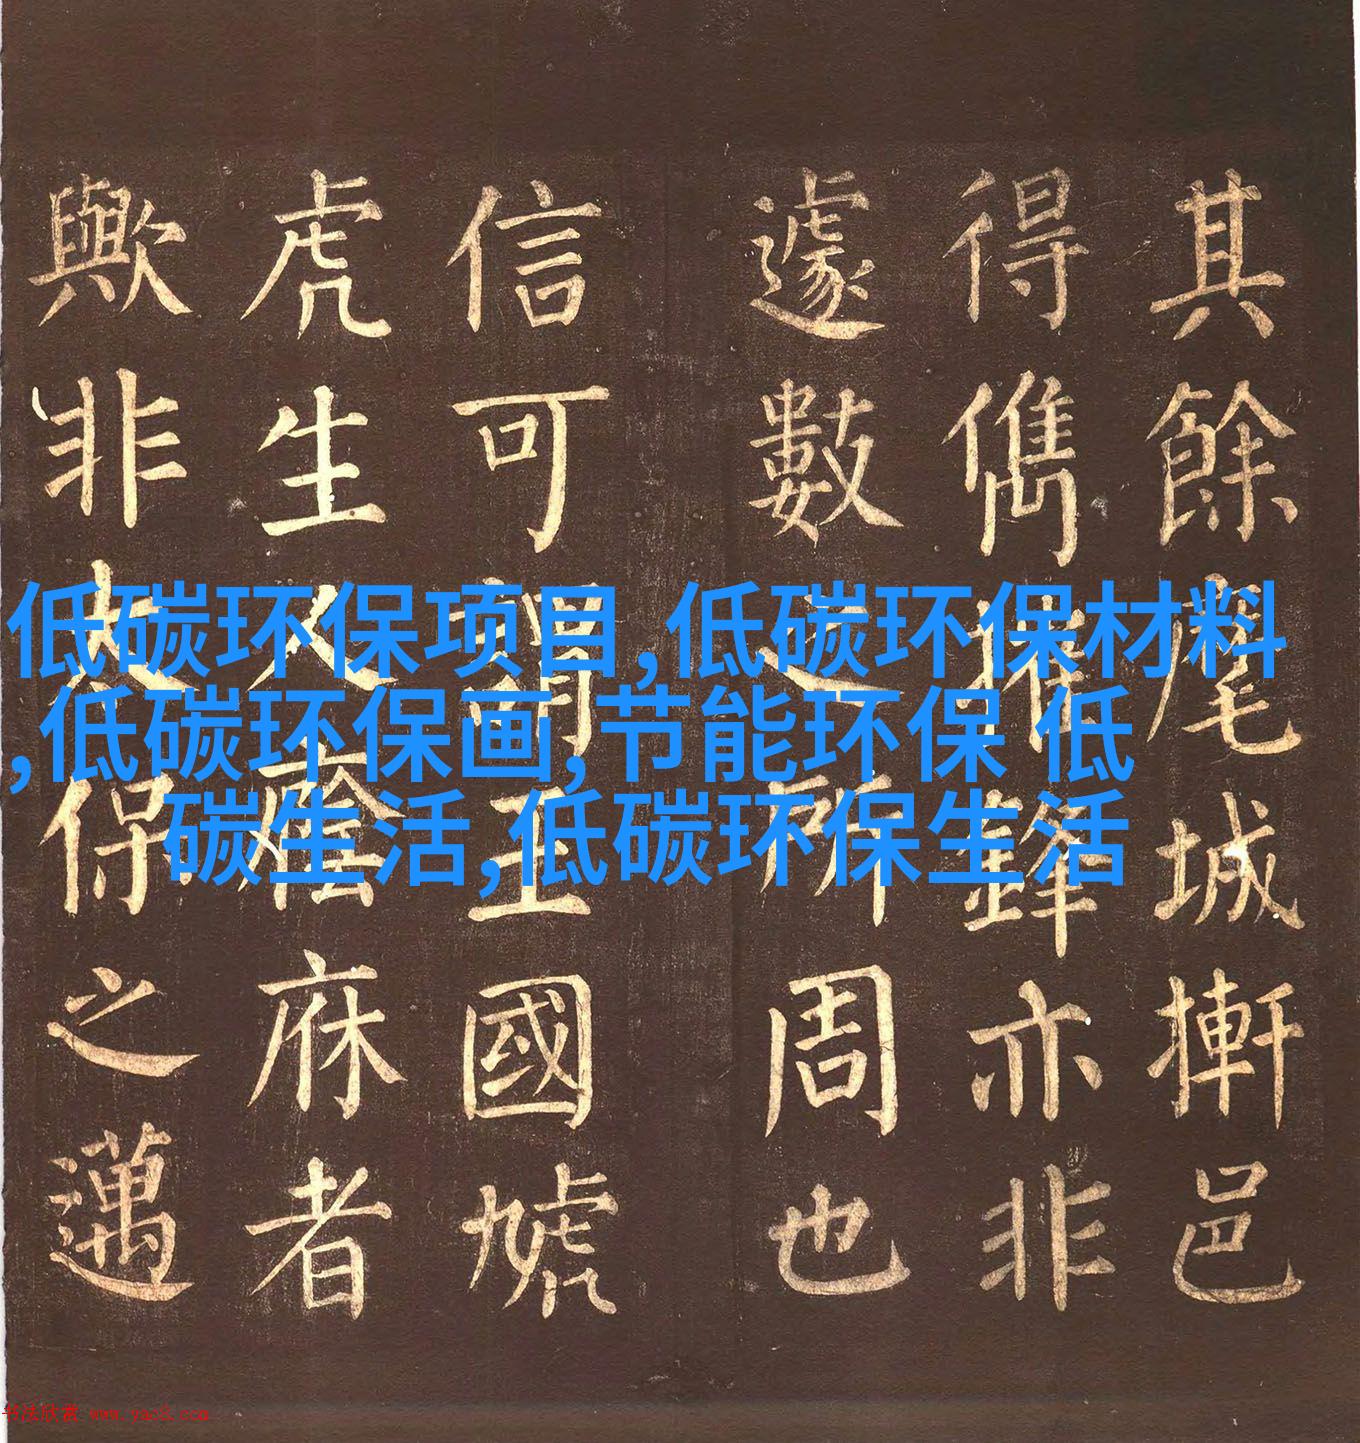 其餘麾城摲邑
得儁摧鋒亦非
遽數之所周也
信可謂王國虓
虎生人蔭庥者
歟非夫之邁
低碳环保项目,低碳环保材料
,低碳环保画,节能环保 低
碳生活,低碳环保生活
书法欣赏 www.yac8.com